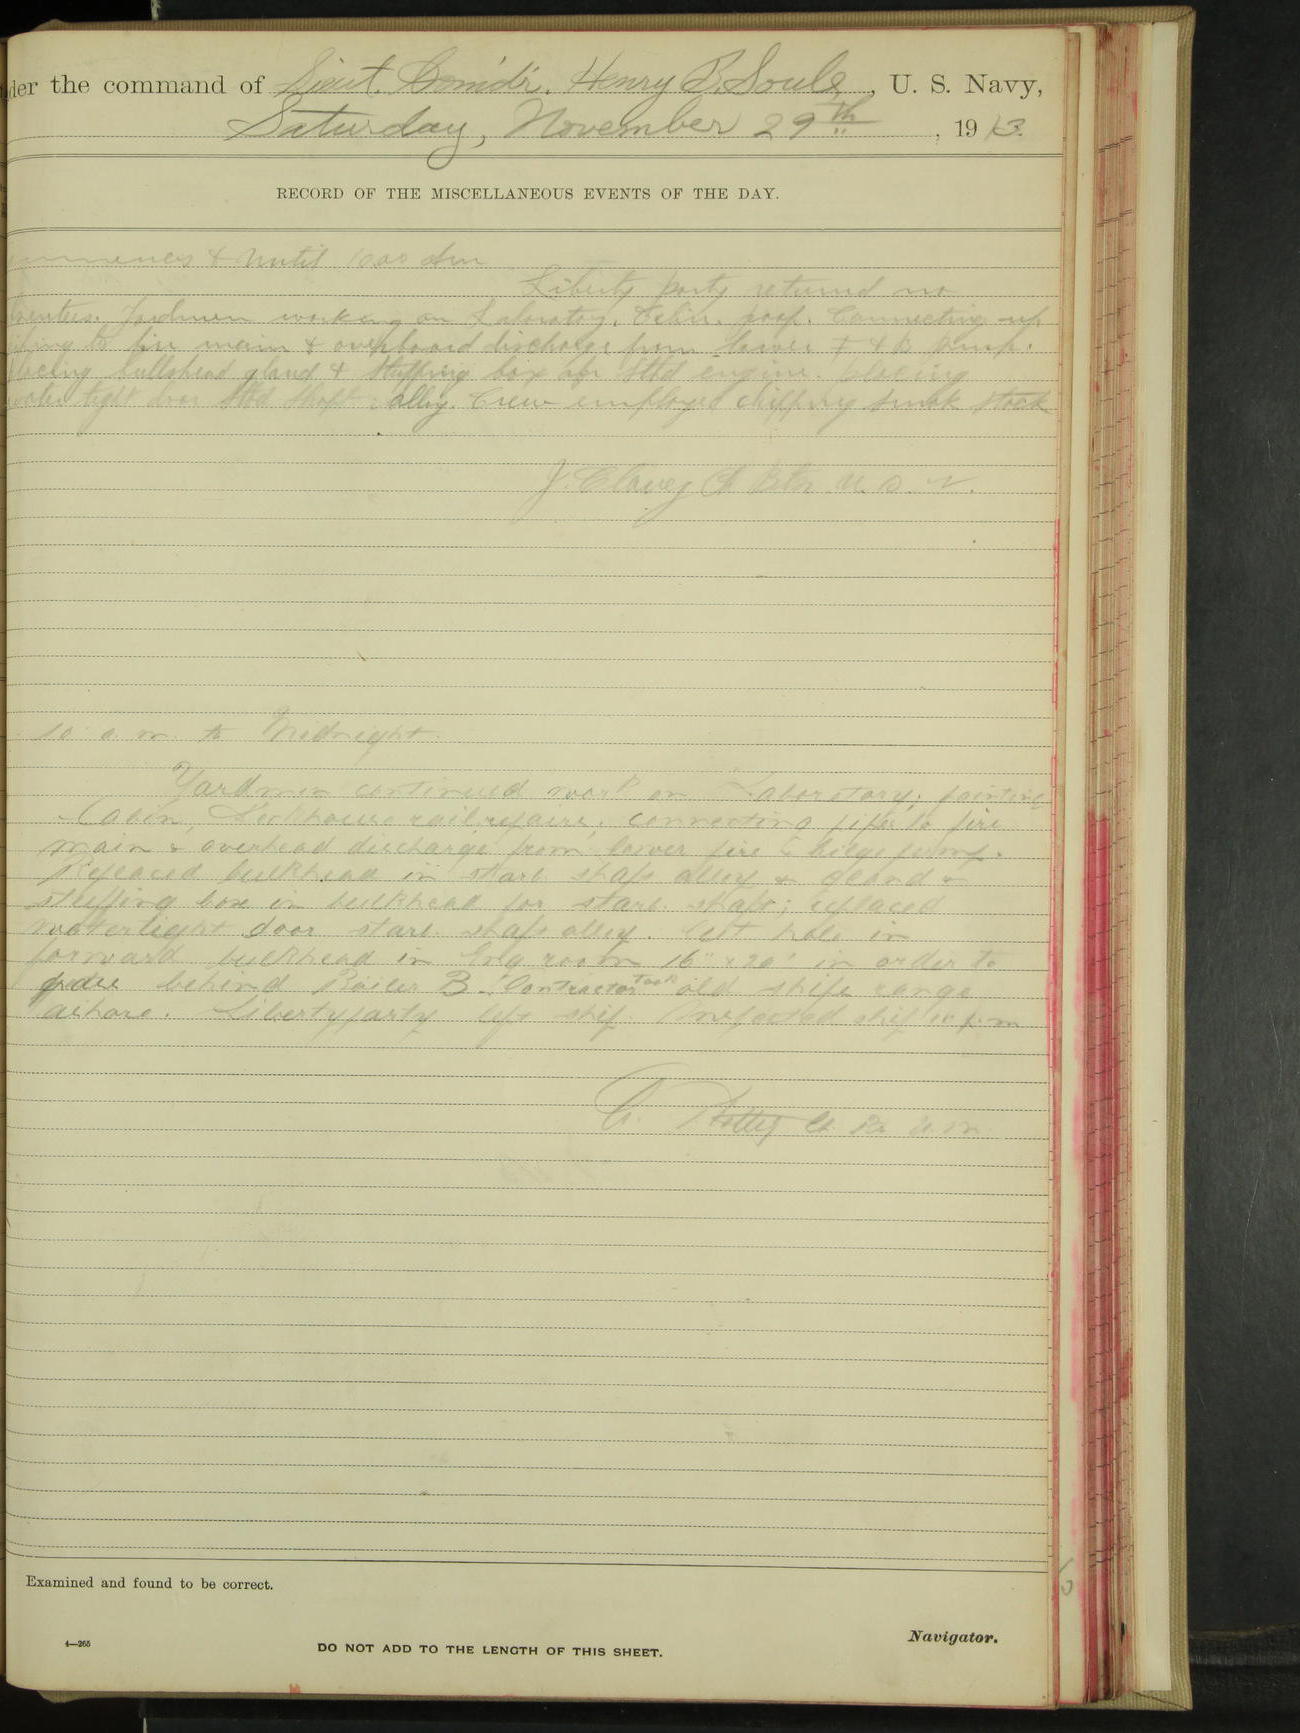 der the command of Lieut. Comdr. Henry B. Soule, U. S. Navy,
Saturday, November 29th, 1913.
RECORD OF THE MISCELLANEOUS EVENTS OF THE DAY.
& Until 10 00 Am
Liberty party returned no
Yardmen working on Laboratory, Cabin, poop. Connecting up
to fire main & overboard discharge from lower F & B pump.
bulkhead gland & Stuffing box for Stbd engine. placing
water tight door Stbd Shaft alley. Crew employed chipping smoke stack
J. Clancy Ch Btn. U. S. N.
10 a. m. to Midnight.
Yardmen continued work on Laboratory; painting
Cabin, Deckhouse rail repairs; connecting pipe to fire
main & overhead discharge from lower fire & bilge pump.
Replaced bulkhead in starb. shaft alley & gland &
stuffing box in bulkhead for starb. shaft; replaced
watertight door starb. shaft alley. Cut hole in
forward bulkhead in Eng room 16" x 20" in order to
behind Boiler B. Contractor took old ships range
ashore. Liberty party left ship. Inspected ship 10 p.m
Examined and found to be correct.
4—265
DO NOT ADD TO THE LENGTH OF THIS SHEET.
Navigator.